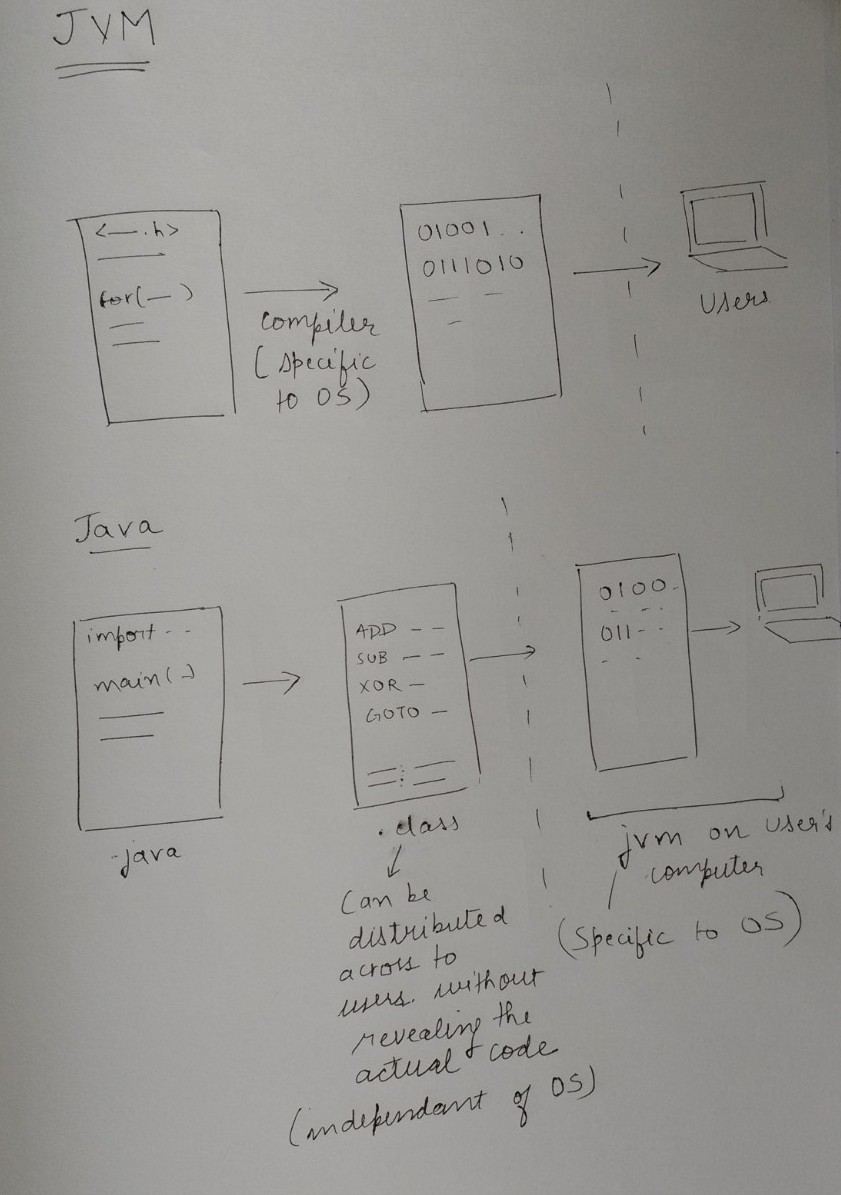 JVM
<—.h>
for(—)
compiler
(specific
to OS)
01001..
0111010
users
Java
import--
main(-)
.java
ADD --
SUB --
XOR -
GOTO -
.class
Can be
distributed
across to
users. without
revealing the
actual code
(independant of OS)
0100.
011--
jvm on user's
computer
(specific to OS)